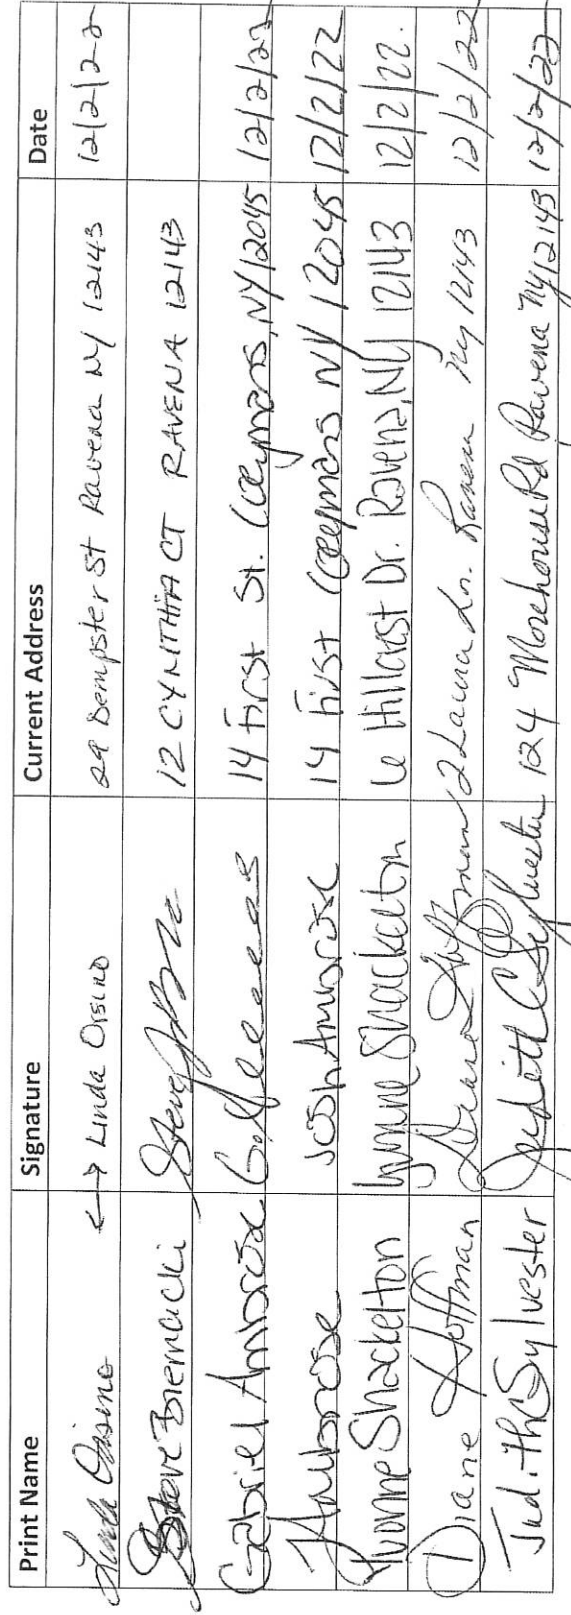 Print Name Signature Current Address Date
Linda Orsino ←→ Linda Orsino 29 Dempster St Ravena NY 12143 12/2/22
Steve Biernacki Steve 12 CYNTHIA CT RAVENA 12143
Gabriel Ambrose 14 First St. Coeymans, NY 12045 12/2/22
Ambrose Josh Ambrose 14 First Coeymans NY 12045 12/2/22
Yvonne Shackelton Yvonne Shackelton 6 Hillcrest Dr. Ravena, NY 12143 12/2/22.
Diane Hoffman Diane Hoffman 2 Laura Ln. Ravena Ny 12143 12/2/22
Judith Sylvester Judith C Sylvester 124 Morehouse Rd Ravena Ny 12143 12/2/22